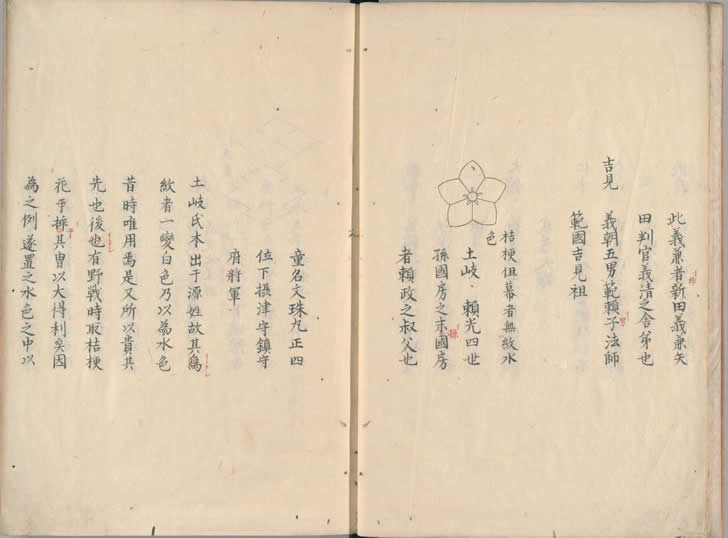 此義兼者新田義兼矢
田判官義清之舎弟也
吉見 義朝五男範頼子法師
範國吉見祖
桔梗但幕者無紋水
色
土岐、頼光四世
孫國房之末國房
孫
者頼政之叔父也
童名文珠丸正四
位下摂津守鎮守
府将軍
土岐氏本出于源姓故其為
紋者一變白色乃以為水色
昔時唯用焉是又所以貴其
先也後也有野戰時取桔梗
花乎挿其冑以大得利矣因
為之例遂置之水色之中以